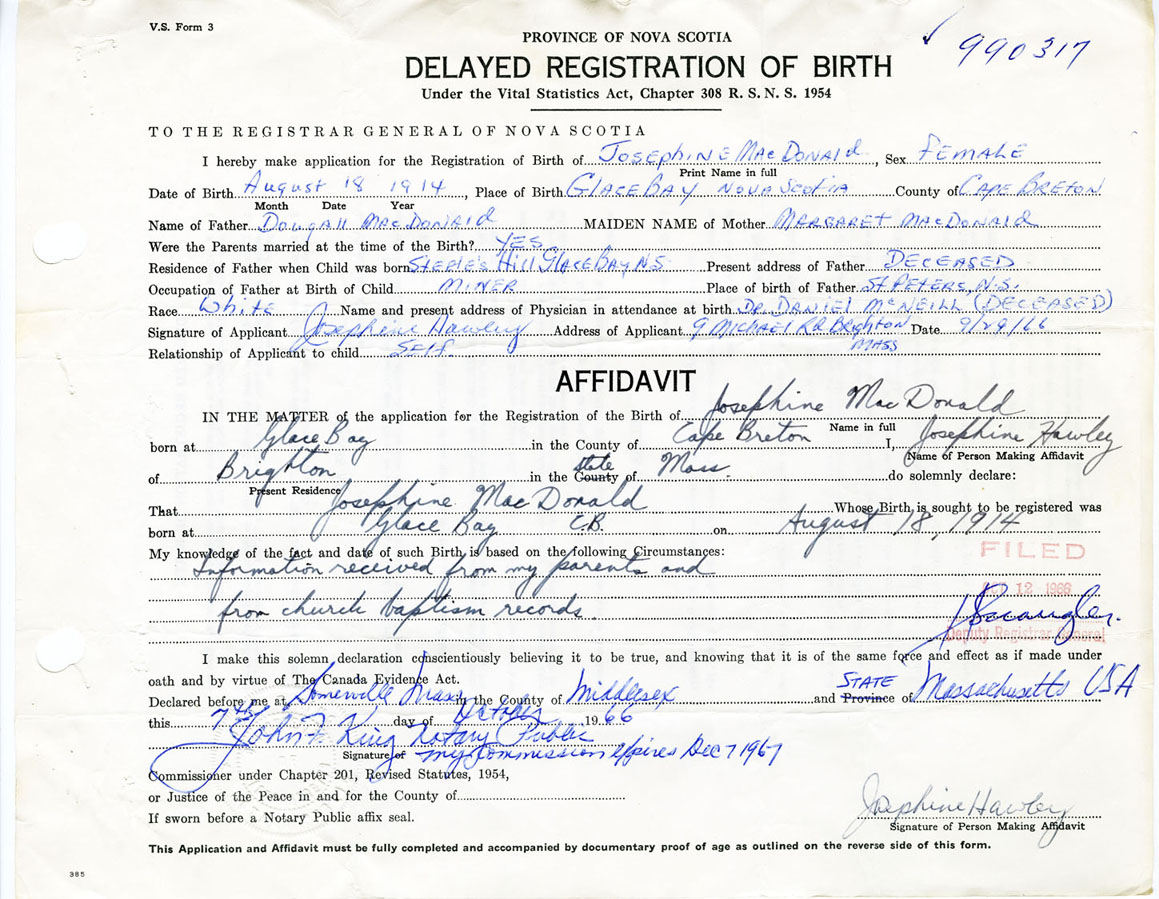 V.S. Form 3
990317
PROVINCE OF NOVA SCOTIA
DELAYED REGISTRATION OF BIRTH
Under the Vital Statistics Act, Chapter 308 R. S. N. S. 1954
TO THE REGISTRAR GENERAL OF NOVA SCOTIA
I hereby make application for the Registration of Birth of Josephine MacDonald, Sex FEMALE
Print Name in full
Date of Birth August 18 1914, Place of Birth GLACE BAY NOVA SCOTIA County of CAPE BRETON
Month Date Year
Name of Father Dougall MacDonald MAIDEN NAME of Mother MARGARET MACDONALD
Were the Parents married at the time of the Birth? YES
Residence of Father when Child was born Steele's Hill Glace Bay N.S. Present address of Father DECEASED
Occupation of Father at Birth of Child MINER Place of birth of Father St PETERS, N.S.
Race White Name and present address of Physician in attendance at birth DR. DANIEL McNEILL (DECEASED)
Signature of Applicant Josephine Hawley Address of Applicant 9 MICHAEL RD BRIGHTON Date 9/29/66
MASS
Relationship of Applicant to child SELF
AFFIDAVIT
IN THE MATTER of the application for the Registration of the Birth of Josephine MacDonald
Name in full
born at Glace Bay in the County of Cape Breton I, Josephine Hawley
Name of Person Making Affidavit
of Brighton in the County state of Mass. do solemnly declare:
Present Residence
That Josephine MacDonald Whose Birth is sought to be registered was
born at Glace Bay C.B. on August 18, 1914
My knowledge of the fact and date of such Birth is based on the following Circumstances:
Information received from my parents and
from church baptism records.
FILED
12 1966
Deputy Registrar General
I make this solemn declaration conscientiously believing it to be true, and knowing that it is of the same force and effect as if made under
oath and by virtue of The Canada Evidence Act.
Declared before me at Somerville Mass in the County of Middlesex and Province STATE of Massachusetts USA
this 7th day of October 1966
John F. King Notary Public
Signature of my Commission expires Dec 7 1967
Commissioner under Chapter 201, Revised Statutes, 1954,
or Justice of the Peace in and for the County of
If sworn before a Notary Public affix seal.
Josephine Hawley
Signature of Person Making Affidavit
This Application and Affidavit must be fully completed and accompanied by documentary proof of age as outlined on the reverse side of this form.
385